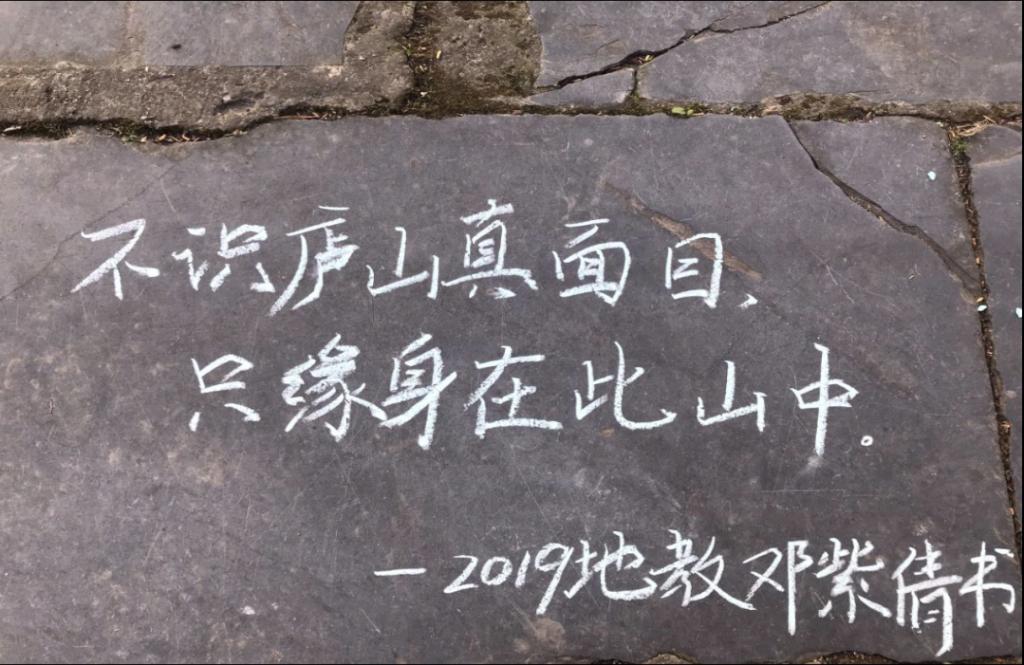 不识庐山真面目，
只缘身在此山中。
—2019地教邓紫倩书